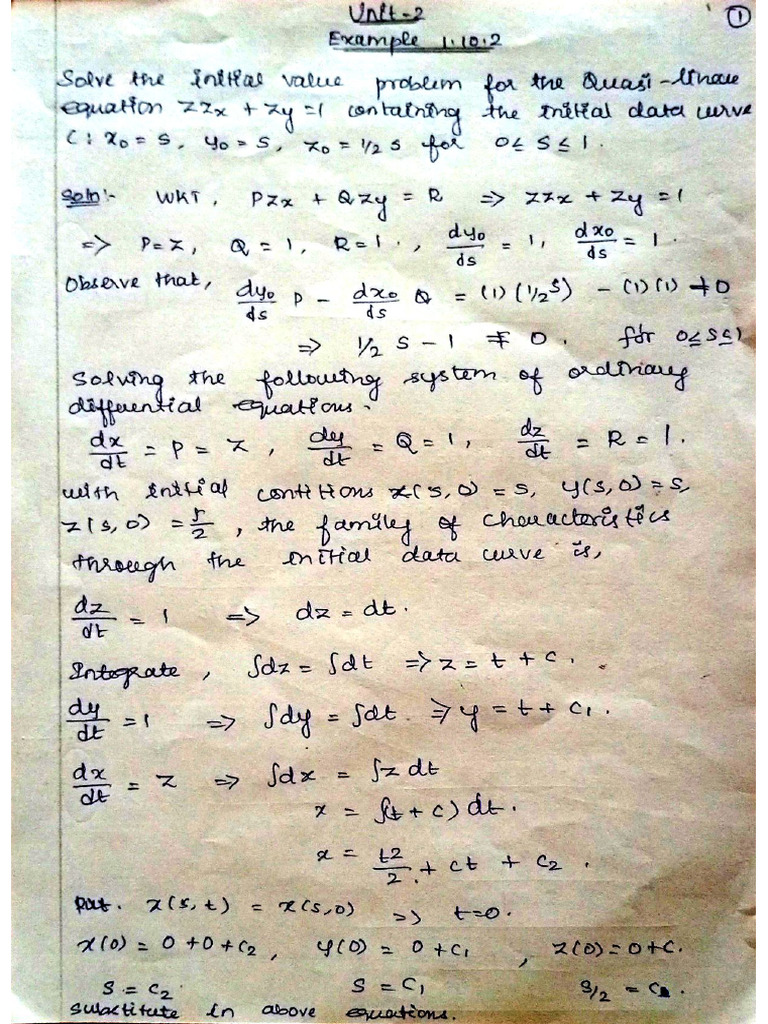 Unit-2
①
Example 1.10.2
Solve the initial value problem for the Quasi-linear
equation zzx + zy = 1 containing the initial data curve
C: x0 = s, y0 = s, z0 = 1/2 s for 0 ≤ s ≤ 1.
Soln:- WKT, Pzx + Qzy = R => zzx + zy = 1
=> P=z, Q = 1, R=1., dy0/ds = 1, dx0/ds = 1.
Observe that, dy0/ds P - dx0/ds Q = (1)(1/2 s) - (1)(1) ≠ 0
=> 1/2 s - 1 ≠ 0. for 0≤s≤1
Solving the following system of ordinary
differential equations.
dx/dt = P = z, dy/dt = Q = 1, dz/dt = R = 1.
with initial contitions x(s,0) = s, y(s,0) = s,
z(s,0) = s/2, the family of characteristics
through the initial data curve is,
dz/dt = 1 => dz = dt.
Integrate, ∫dz = ∫dt => z = t + c.
dy/dt = 1 => ∫dy = ∫dt. => y = t + c1.
dx/dt = z => ∫dx = ∫z dt
x = ∫(t + c) dt.
x = t2/2 + ct + c2.
Put. x(s,t) = x(s,0) => t=0.
x(0) = 0 + 0 + c2, y(0) = 0 + c1, z(0) = 0 + c.
s = c2 s = c1 s/2 = c.
substitute in above equations.